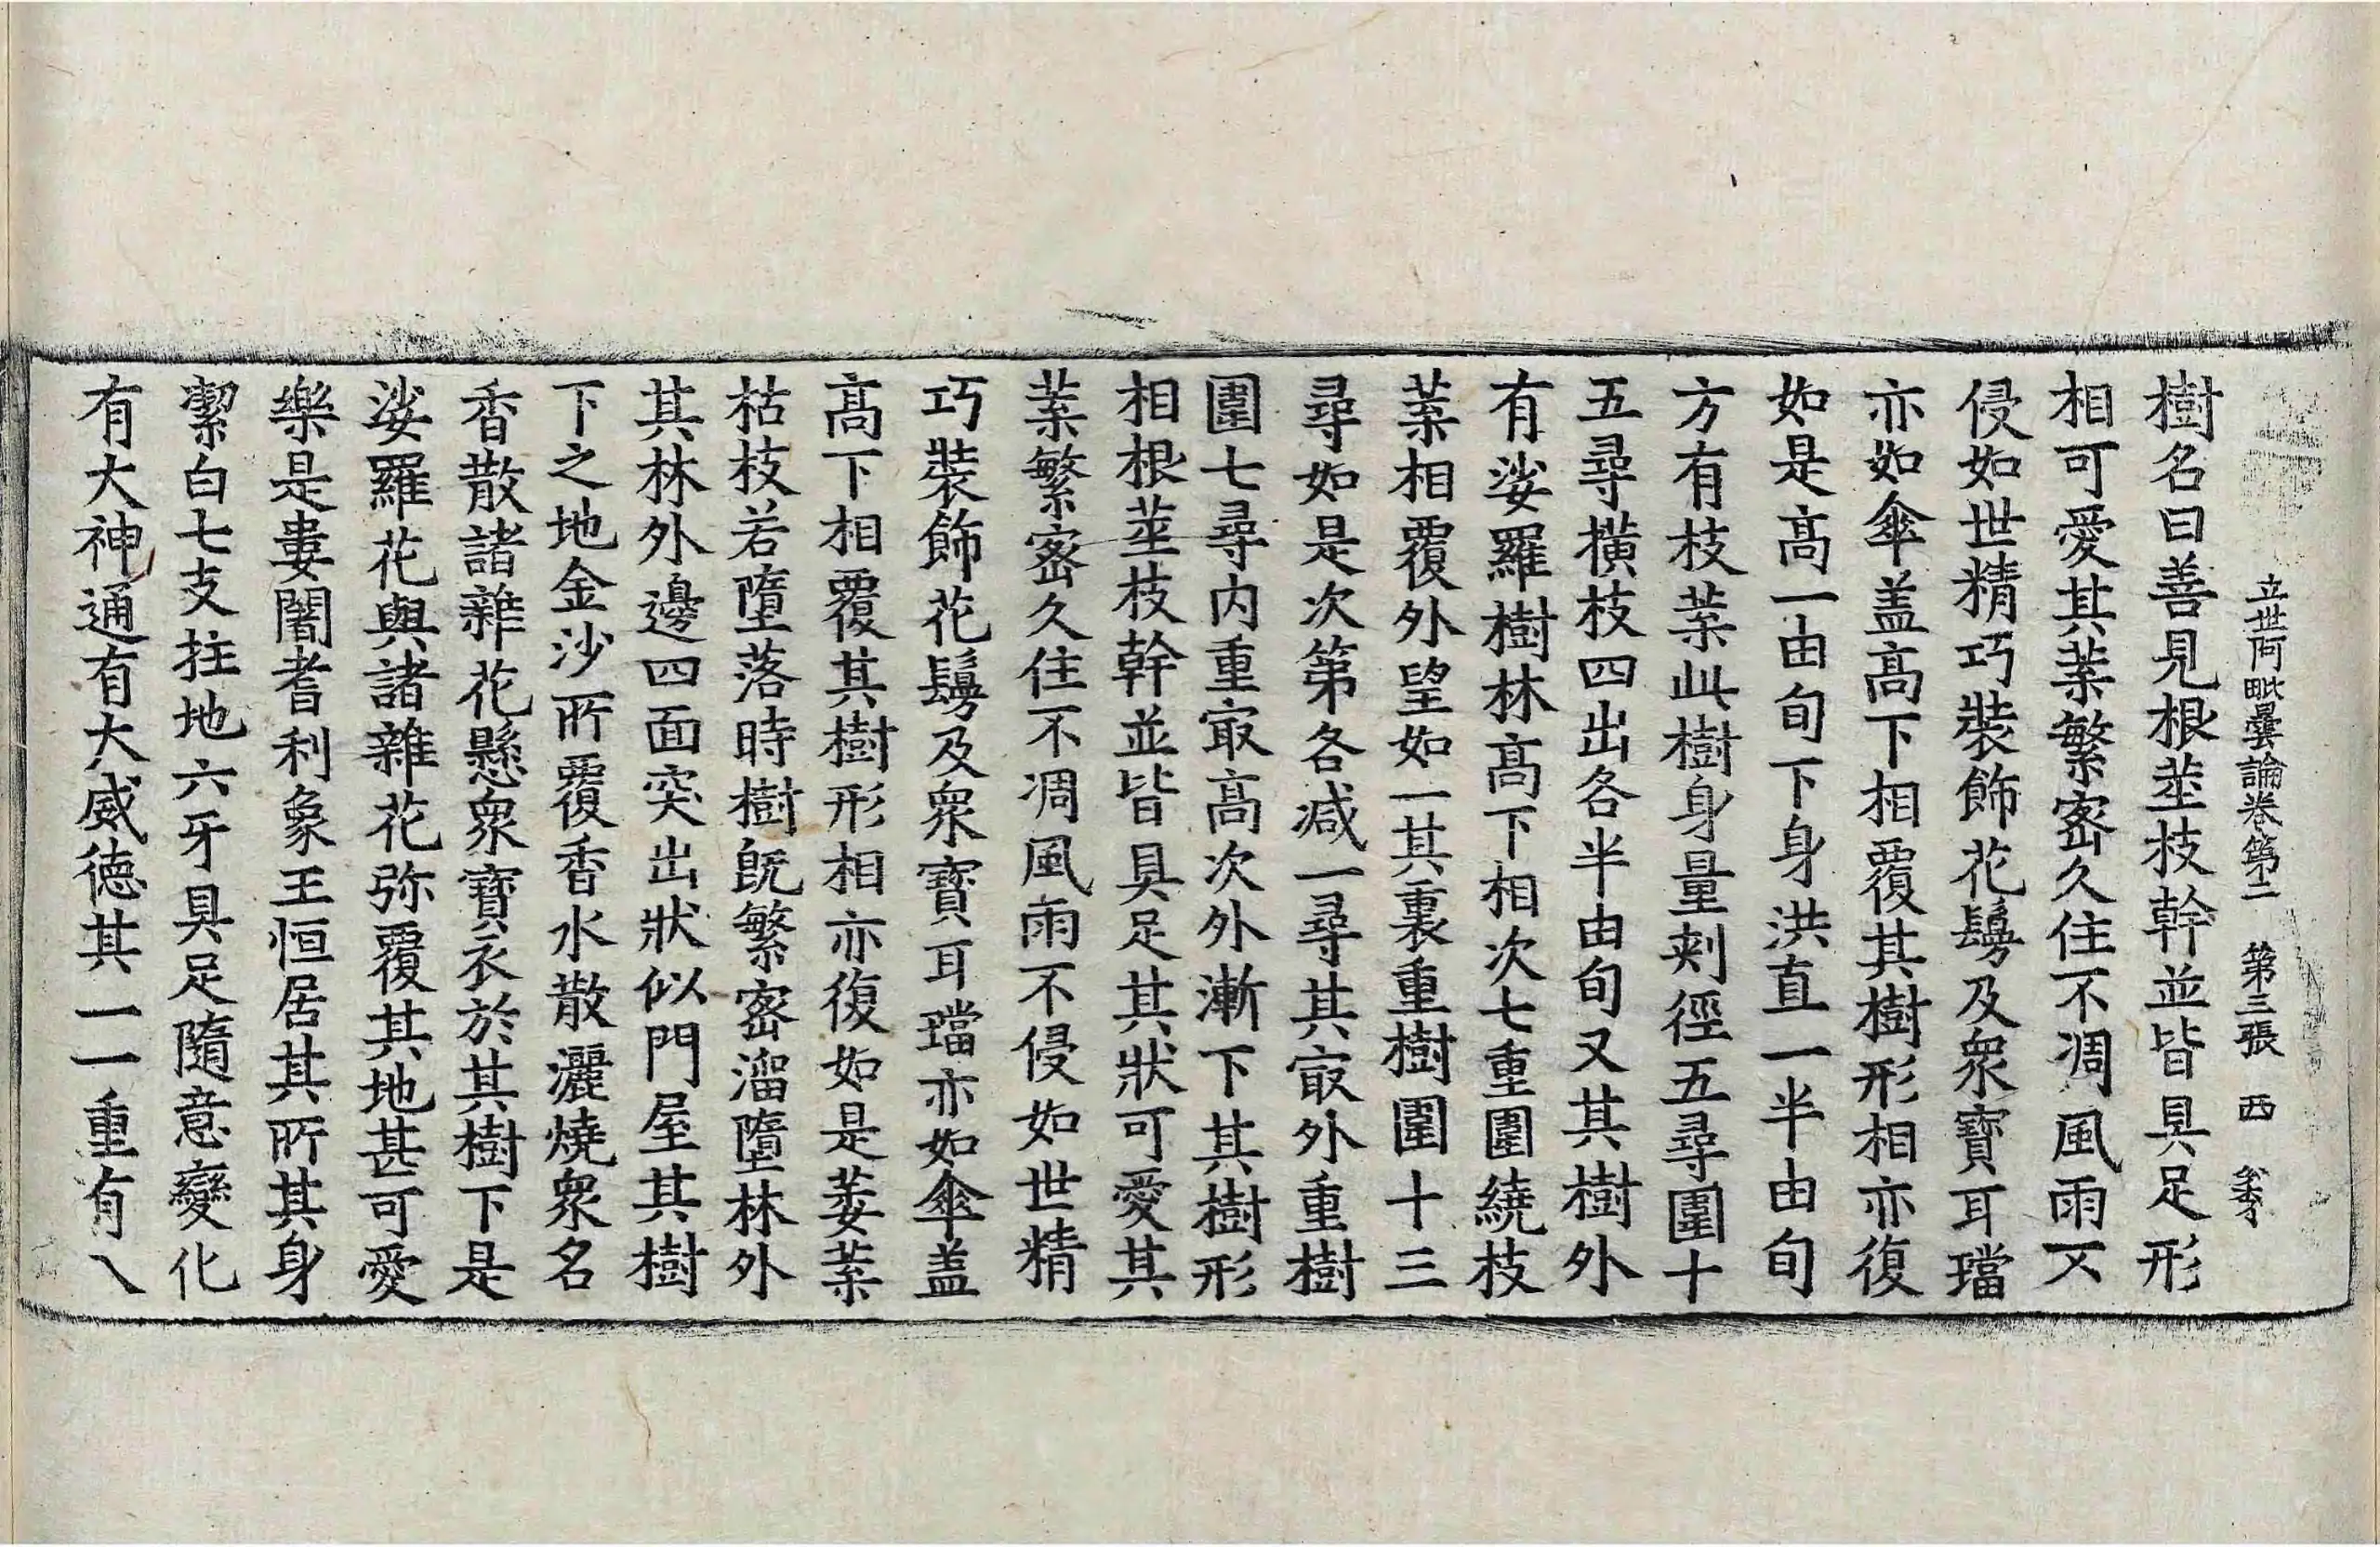 立世阿毗曇論卷第二 第三張 西
樹名曰善見根莖枝幹並皆具足形
相可愛其葉繁密久住不凋風雨不
侵如世精巧裝飾花鬘及衆寶耳璫
亦如傘盖高下相覆其樹形相亦復
如是高一由旬下身洪直一半由旬
方有枝葉此樹身量刾徑五尋圍十
五尋橫枝四出各半由旬又其樹外
有娑羅樹林高下相次七重圍繞枝
葉相覆外望如一其裏重樹圍十三
尋如是次第各减一尋其㝡外重樹
圍七尋内重㝡高次外漸下其樹形
相根莖枝幹並皆具足其狀可愛其
葉繁密久住不凋風雨不侵如世精
巧裝飾花鬘及衆寶耳璫亦如傘盖
高下相覆其樹形相亦復如是萎葉
枯枝若墮落時樹旣繁密溜墮林外
其林外邊四面突出狀似門屋其樹
下之地金沙所覆香水散灑燒衆名
香散諸雜花懸衆寶衣於其樹下是
娑羅花與諸雜花弥覆其地甚可愛
樂是婁闍耆利象王恒居其所其身
潔白七支拄地六牙具足隨意變化
有大神通有大威德其一一重有八